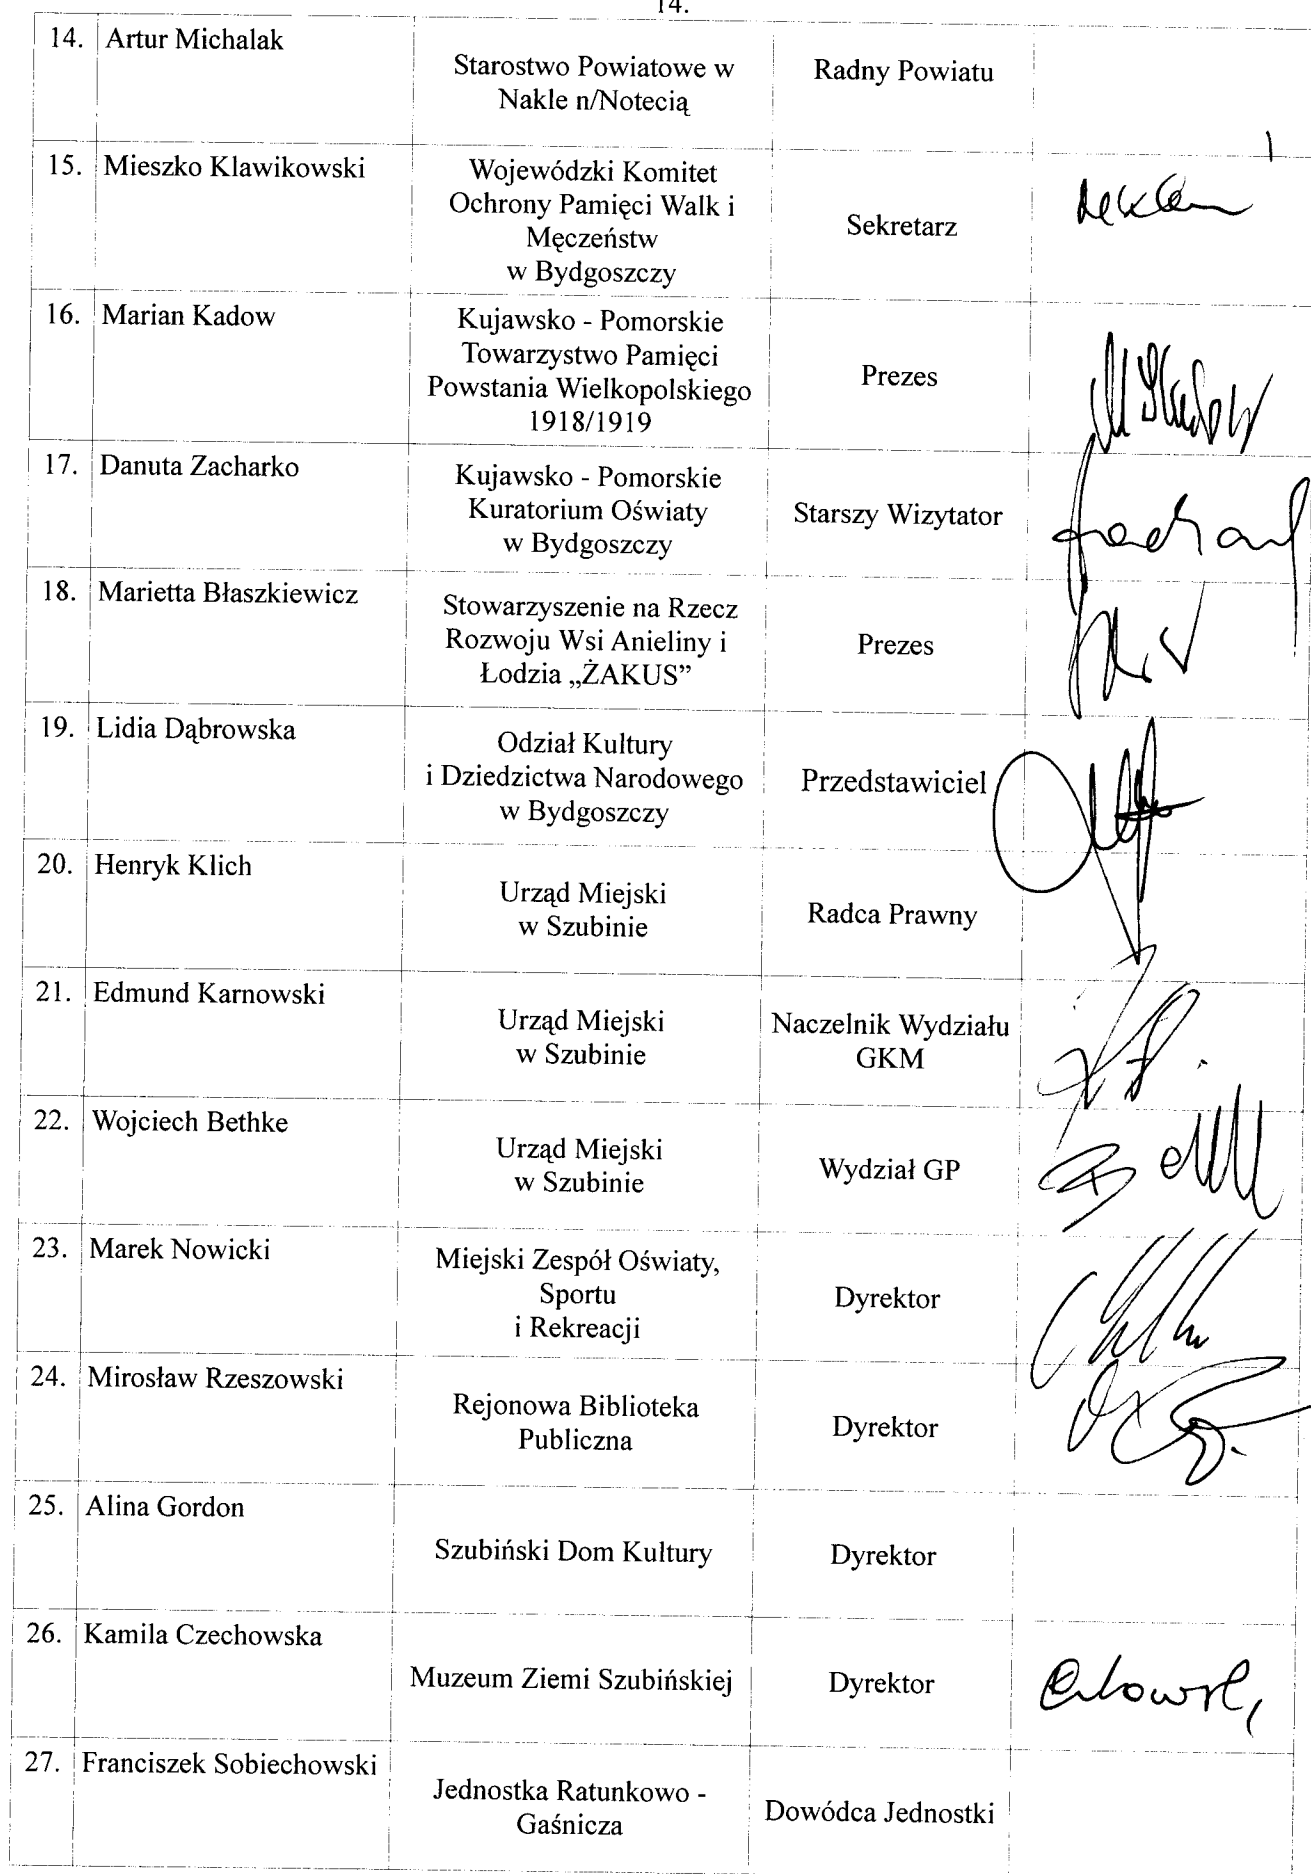 14.
14. Artur Michalak
Starostwo Powiatowe w
Nakle n/Notecią
Radny Powiatu
15. Mieszko Klawikowski
Wojewódzki Komitet
Ochrony Pamięci Walk i
Męczeństw
w Bydgoszczy
Sekretarz
16. Marian Kadow
Kujawsko - Pomorskie
Towarzystwo Pamięci
Powstania Wielkopolskiego
1918/1919
Prezes
17. Danuta Zacharko
Kujawsko - Pomorskie
Kuratorium Oświaty
w Bydgoszczy
Starszy Wizytator
18. Marietta Błaszkiewicz
Stowarzyszenie na Rzecz
Rozwoju Wsi Anieliny i
Łodzia „ŻAKUS”
Prezes
19. Lidia Dąbrowska
Odział Kultury
i Dziedzictwa Narodowego
w Bydgoszczy
Przedstawiciel
20. Henryk Klich
Urząd Miejski
w Szubinie
Radca Prawny
21. Edmund Karnowski
Urząd Miejski
w Szubinie
Naczelnik Wydziału
GKM
22. Wojciech Bethke
Urząd Miejski
w Szubinie
Wydział GP
23. Marek Nowicki
Miejski Zespół Oświaty,
Sportu
i Rekreacji
Dyrektor
24. Mirosław Rzeszowski
Rejonowa Biblioteka
Publiczna
Dyrektor
25. Alina Gordon
Szubiński Dom Kultury
Dyrektor
26. Kamila Czechowska
Muzeum Ziemi Szubińskiej
Dyrektor
27. Franciszek Sobiechowski
Jednostka Ratunkowo -
Gaśnicza
Dowódca Jednostki